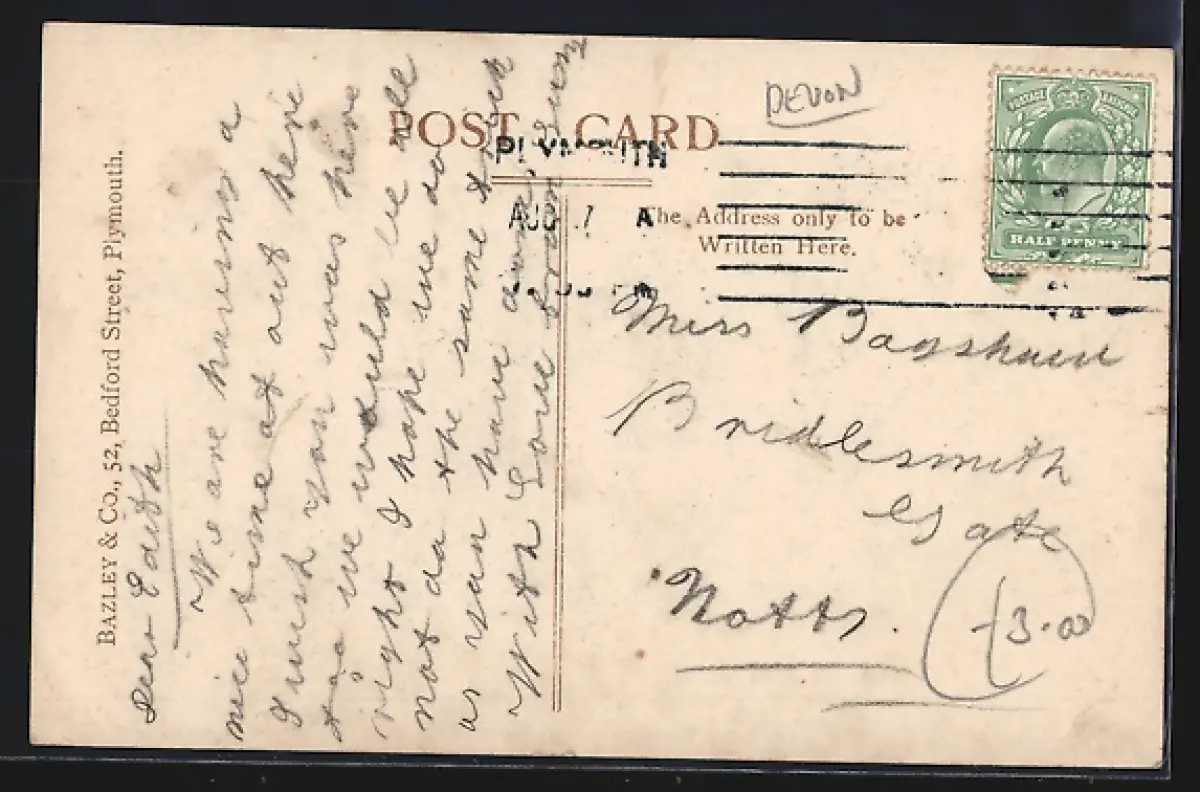 BAZLEY & CO., 52, Bedford Street, Plymouth.
Dear Edith
We are having a
nice time at out here
I wish you was here
to we would be all
right I hope we do
not do the same trick
as you have done
With Love from
POST CARD
The Address only to be
Written Here.
PLYMOUTH
AUG 7 A
DEVON
HALF PENNY
Miss Bagshaw
Bridlesmith
Gate
Notts.
3.00